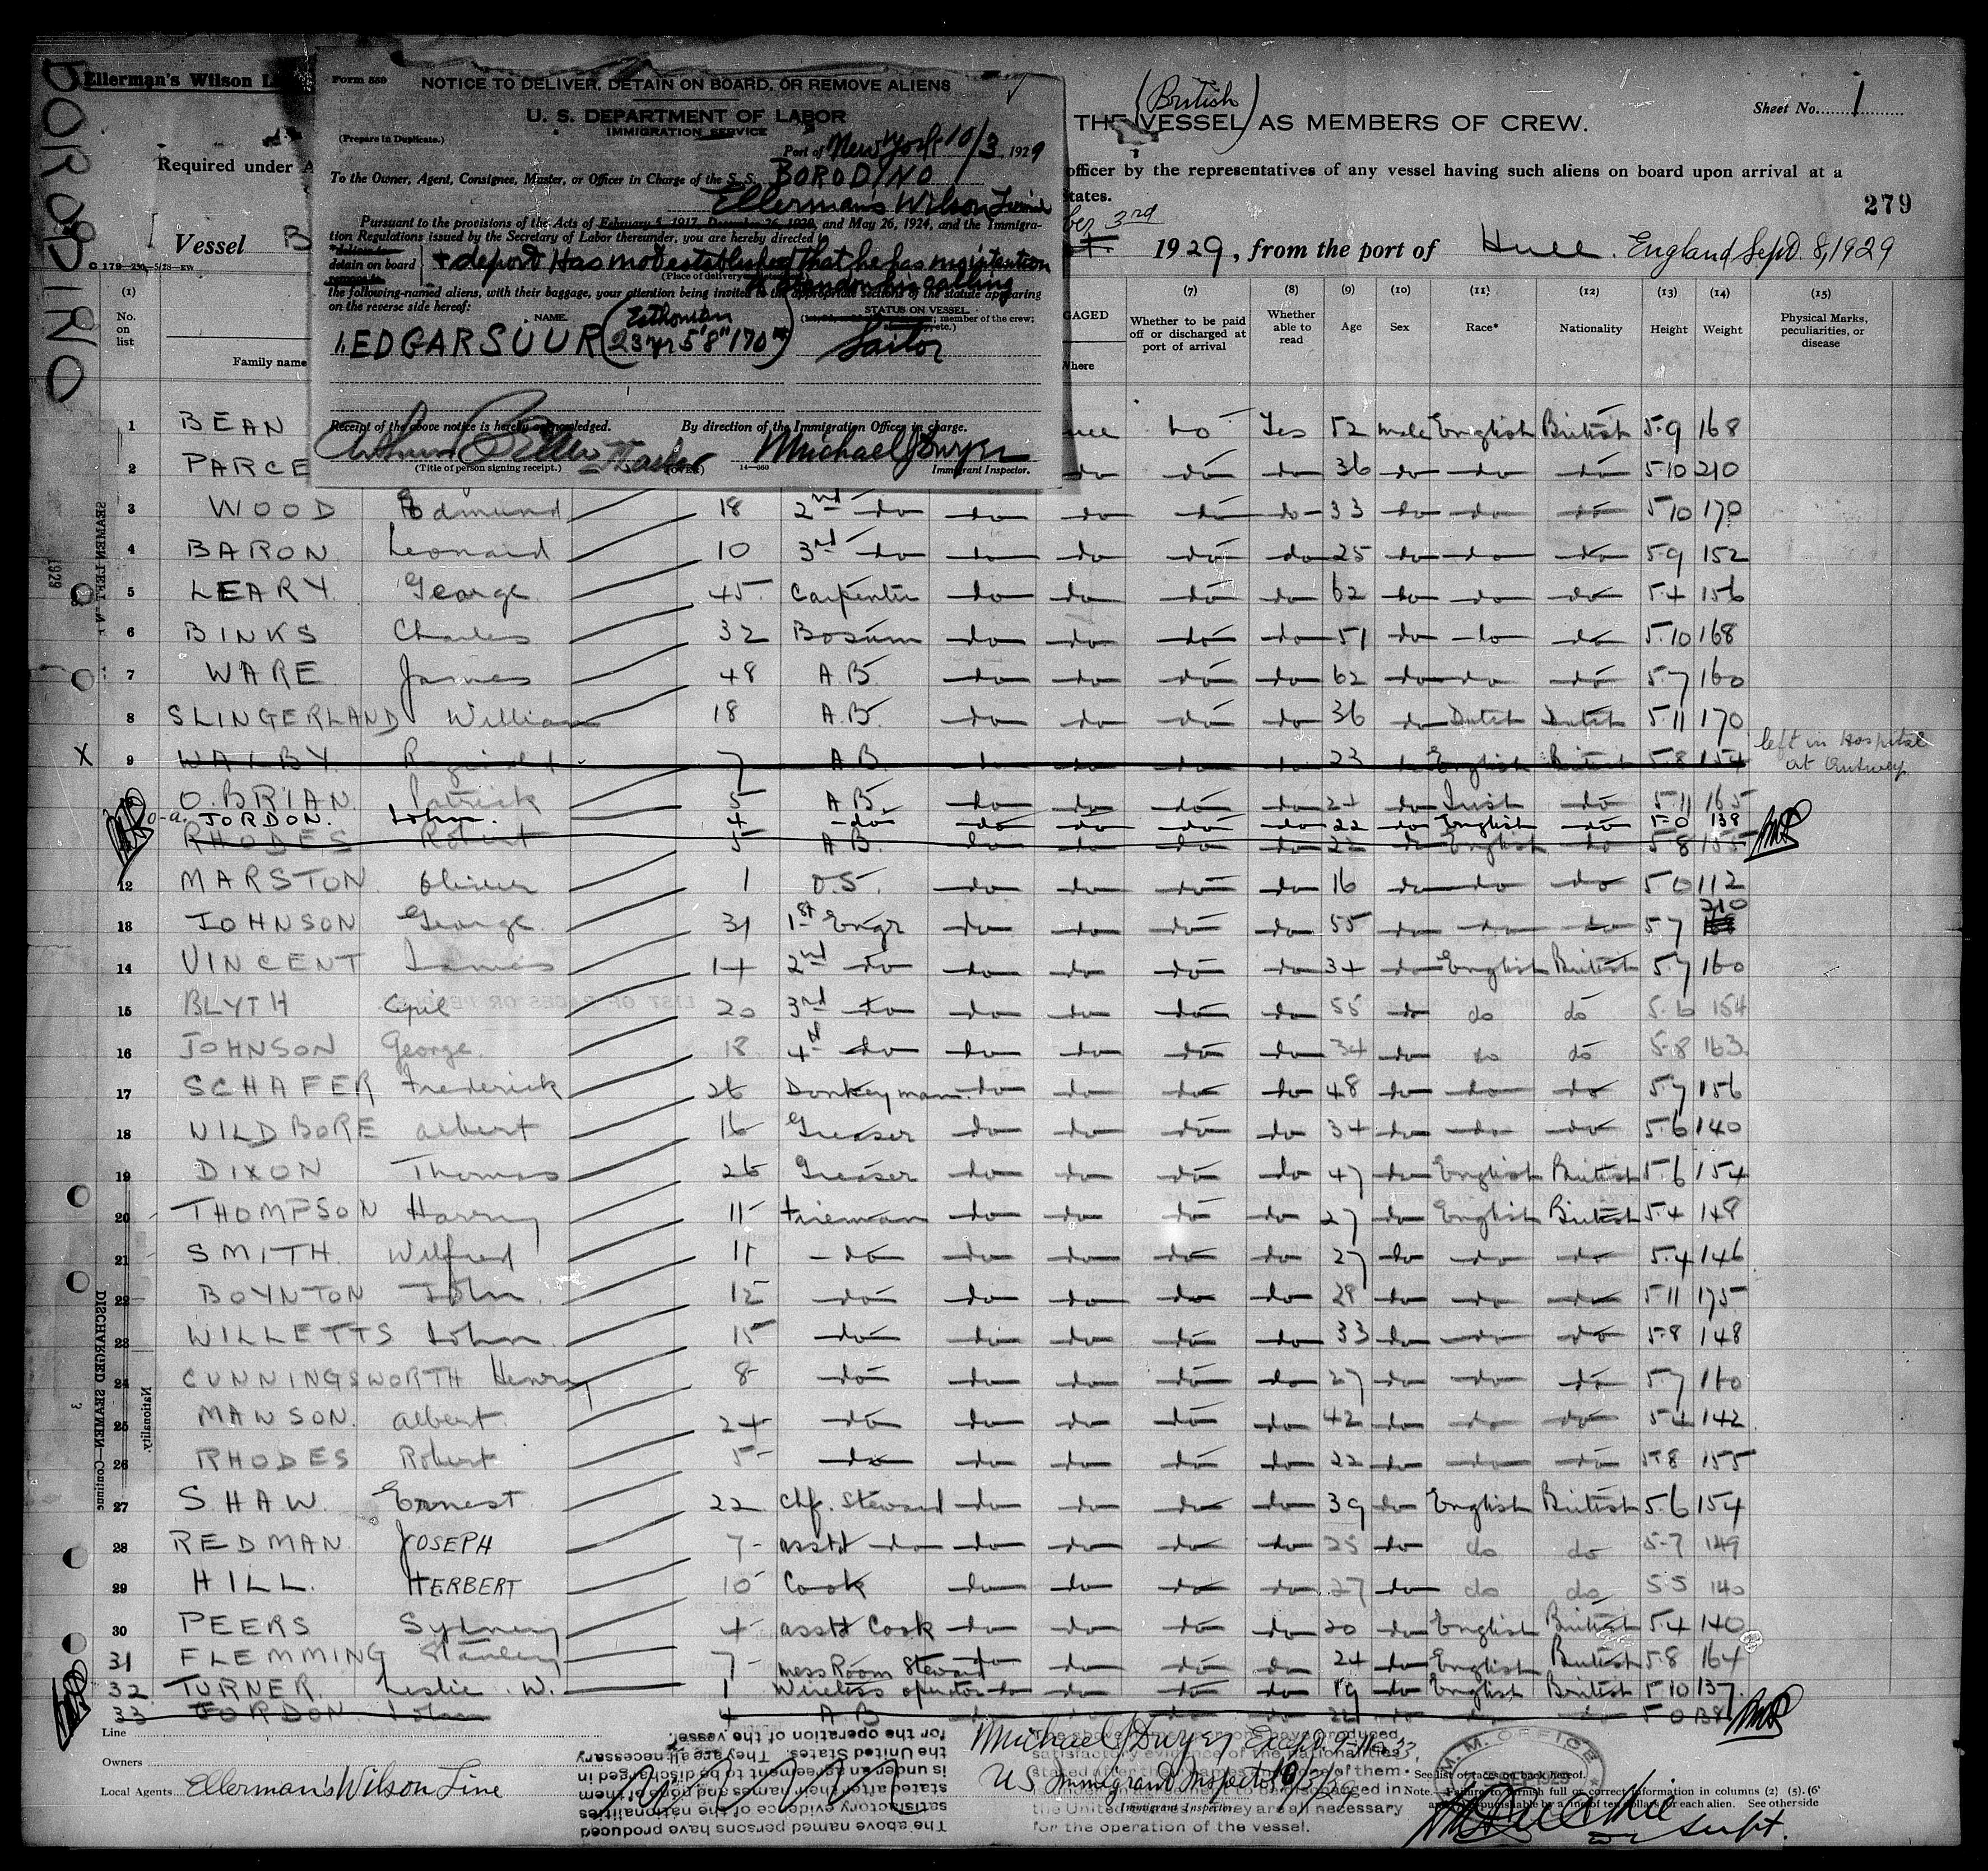 BORODINO
Ellerman's Wilson L
Form 559
NOTICE TO DELIVER, DETAIN ON BOARD, OR REMOVE ALIENS
U. S. DEPARTMENT OF LABOR
IMMIGRATION SERVICE
(Prepare in Duplicate.)
Port of New York 10/3, 1929
To the Owner, Agent, Consignee, Master, or Officer in Charge of the S. S. BORODINO
Ellerman's Wilson Line
Pursuant to the provisions of the Acts of February 5, 1917, December 26, 1920, and May 26, 1924, and the Immigra-
tion Regulations issued by the Secretary of Labor thereunder, you are hereby directed to
detain on board + deport Has not established that he has no intention
(Place of delivery
to abandon his calling
the following-named aliens, with their baggage, your attention being invited to the appropriate sections of the statute appearing
on the reverse side hereof:
NAME.
STATUS ON VESSEL
member of the crew;
etc.)
1. EDGAR SUUR (Esthonian 23 yr 5'8" 170#) Sailor
Receipt of the above notice is hereby acknowledged.
By direction of the Immigration Officer in charge.
Michael J Dwyer
(Title of person signing receipt.)
14—660
Immigrant Inspector.
(British)
THE VESSEL AS MEMBERS OF CREW.
Sheet No. 1
Required under A
officer by the representatives of any vessel having such aliens on board upon arrival at a
States.
279
Vessel B
ber 3rd
1929, from the port of Hull. England Sept. 8, 1929
(1) (7) (8) (9) (10) (11) (12) (13) (14) (15)
No. on list
Family name
GAGED
Where
Whether to be paid off or discharged at port of arrival
Whether able to read
Age
Sex
Race*
Nationality
Height
Weight
Physical Marks, peculiarities, or disease
1 BEAN no Yes 52 male English British 5-9 168
2 PARCE do do do 36 do do do 5-10 210
3 WOOD Edmund 18 2nd do do do do do 33 do do do 5-10 170
4 BARON Leonard 10 3rd do do do do do 25 do do do 5-9 152
5 LEARY George 45 Carpenter do do do do 62 do do do 5-4 156
6 BINKS Charles 32 Bosun do do do do 51 do do do 5-10 168
7 WARE James 48 A.B. do do do do 62 do do do 5-7 160
8 SLINGERLAND William 18 A.B. do do do do 36 do Dutch Dutch 5-11 170
X 9 WALBY Reginald 7 A.B. do do do do 23 do English British 5-8 154 left in Hospital at Antwerp
O.BRIAN Patrick 5 A.B. do do do do 24 do Irish do 5-11 165
10-a. JORDON. John. 4 do do do do do 22 do English do 5-0 138
RHODES Robert 5 A.B. do do do do 22 do English do 5-8 155
12 MARSTON Oliver 1 O.S. do do do do 16 do do do 5-0 112
13 JOHNSON George 31 1st Engr do do do do 55 do do do 5-7 210
14 VINCENT James 14 2nd do do do do do 34 do English British 5-7 160
15 BLYTH Cyril 20 3rd do do do do do 55 do do do 5-6 154
16 JOHNSON George 18 4th do do do do do 34 do do do 5-8 163
17 SCHAFER Frederick 26 Donkeyman do do do do 48 do do do 5-7 156
18 WILDBORE Albert 16 Greaser do do do do 34 do do do 5-6 140
19 DIXON Thomas 26 Greaser do do do do 47 do English British 5-6 154
20 THOMPSON Harry 11 Fireman do do do do 27 do English British 5-4 148
21 SMITH Wilfred 11 do do do do do 27 do do do 5-4 146
22 BOYNTON John 12 do do do do do 28 do do do 5-11 175
23 WILLETTS John 15 do do do do do 33 do do do 5-8 148
24 CUNNINGSWORTH Henry 8 do do do do do 27 do do do 5-7 160
25 MAWSON. Albert 24 do do do do do 42 do do do 5-4 142
26 RHODES Robert 5 do do do do do 22 do do do 5-8 155
27 SHAW Ernest 22 Chf. Steward do do do do 39 do English British 5-6 154
28 REDMAN JOSEPH 7 asstt do do do do do 25 do do do 5-7 149
29 HILL. HERBERT 10 Cook do do do do 27 do do do 5-5 140
30 PEERS Sydney 4 asstt Cook do do do do 20 do English British 5-4 140
31 FLEMMING Stanley 7 Mess Room Steward do do do do 24 do English British 5-8 164
32 TURNER Leslie W. 1 Wireless operator do do do do 19 do English British 5-10 137
33 JORDON John 4 A.B. do do do do 22 do do do 5-0 138
SEAMEN LEFT
1929
DISCHARGED SEAMEN—Continue
Nationality.
Line
Owners
Local Agents Ellerman's Wilson Line
The above named persons have produced
satisfactory evidence of the nationalities
stated after their names and none of them
is under an agreement to be discharged in
the United States. They are all necessary
for the operation of the vessel.
Michael J Dwyer
US Immigrant Inspector
Immigrant Inspector.
The above named persons have produced
satisfactory evidence of the nationalities
stated after their names and none of them
the United States. They are all necessary
for the operation of the vessel.
M. M. OFFICE
See list of races on back hereof.
Note.—Failure to furnish full or correct information in columns (2) (5), (6)
punishable by a fine of ten dollars for each alien. See otherside
Supt.